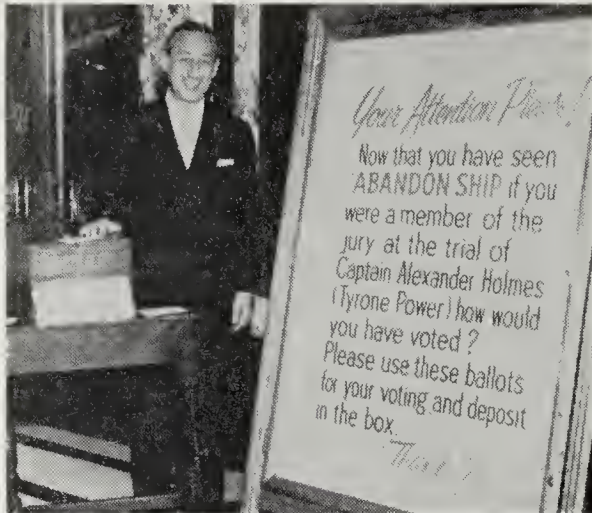 Your Attention Please!
Now that you have seen
ABANDON SHIP if you
were a member of the
jury at the trial of
Captain Alexander Holmes
(Tyrone Power) how would
you have voted?
Please use these ballots
for your voting and deposit
in the box.